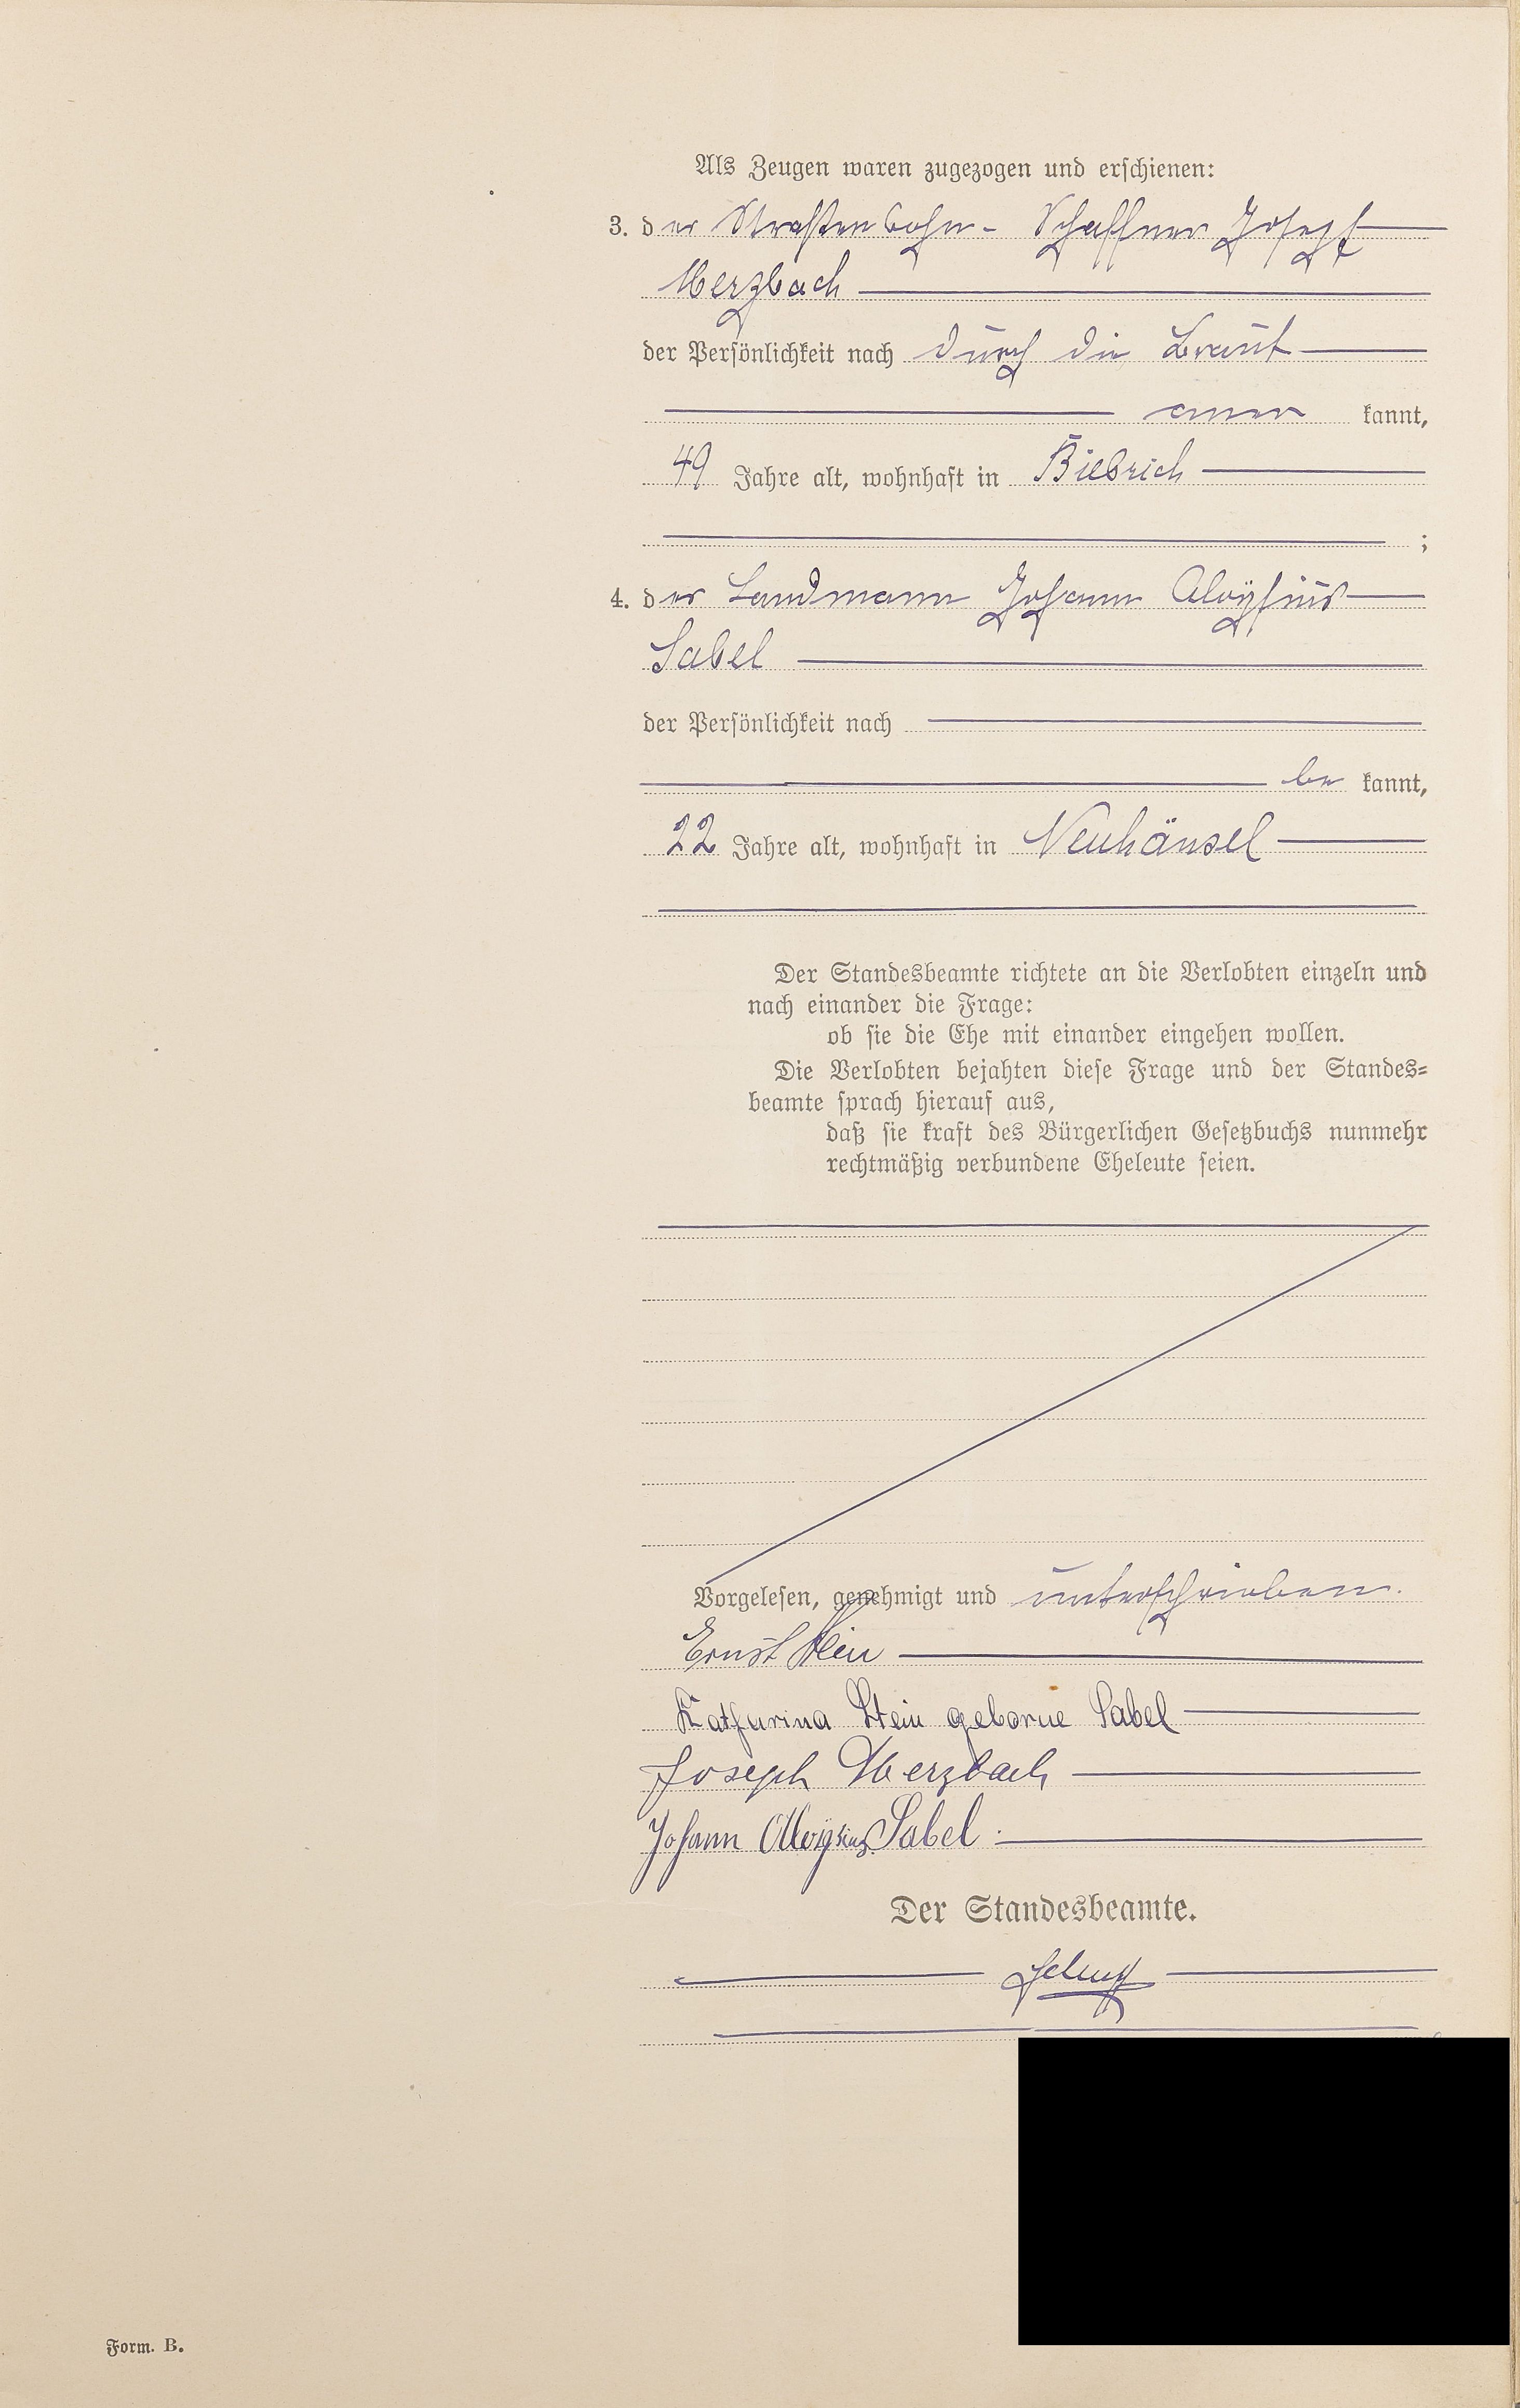 Als Zeugen waren zugezogen und erschienen:
3. der Straßenbahn-Schaffner Joseph
Merzbach
der Persönlichkeit nach durch die Braut
aner kannt,
49 Jahre alt, wohnhaft in Biebrich
;
4. der Landmann Johann Aloysius
Sabel
der Persönlichkeit nach
be kannt,
22 Jahre alt, wohnhaft in Neuhäusel
Der Standesbeamte richtete an die Verlobten einzeln und
nach einander die Frage:
ob sie die Ehe mit einander eingehen wollen.
Die Verlobten bejahten diese Frage und der Standes=
beamte sprach hierauf aus,
daß sie kraft des Bürgerlichen Gesetzbuchs nunmehr
rechtmäßig verbundene Eheleute seien.
Vorgelesen, genehmigt und unterschrieben.
Ernst Stein
Katharina Stein geborne Sabel
Joseph Merzbach
Johann Aloysius Sabel.
Der Standesbeamte.
Form. B.